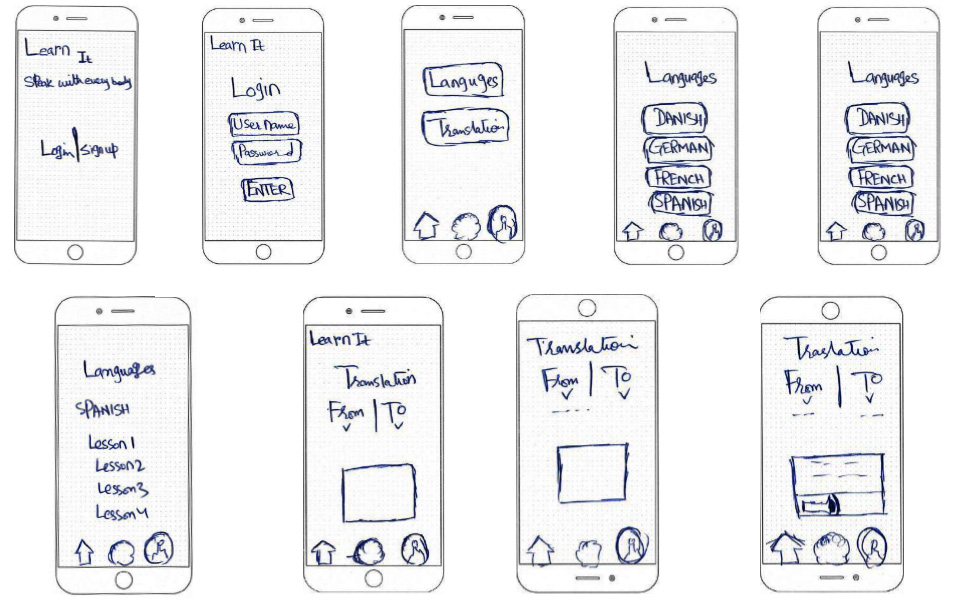 Learn It
Speak with everybody
Login | Signup
Learn It
Login
User Name
Password
ENTER
Languges
Translation
Languages
DANISH
GERMAN
FRENCH
SPANISH
Languages
DANISH
GERMAN
FRENCH
SPANISH
Languages
SPANISH
Lesson 1
Lesson 2
Lesson 3
Lesson 4
Learn It
Translation
From | To
Translation
From | To
Traslation
From | To